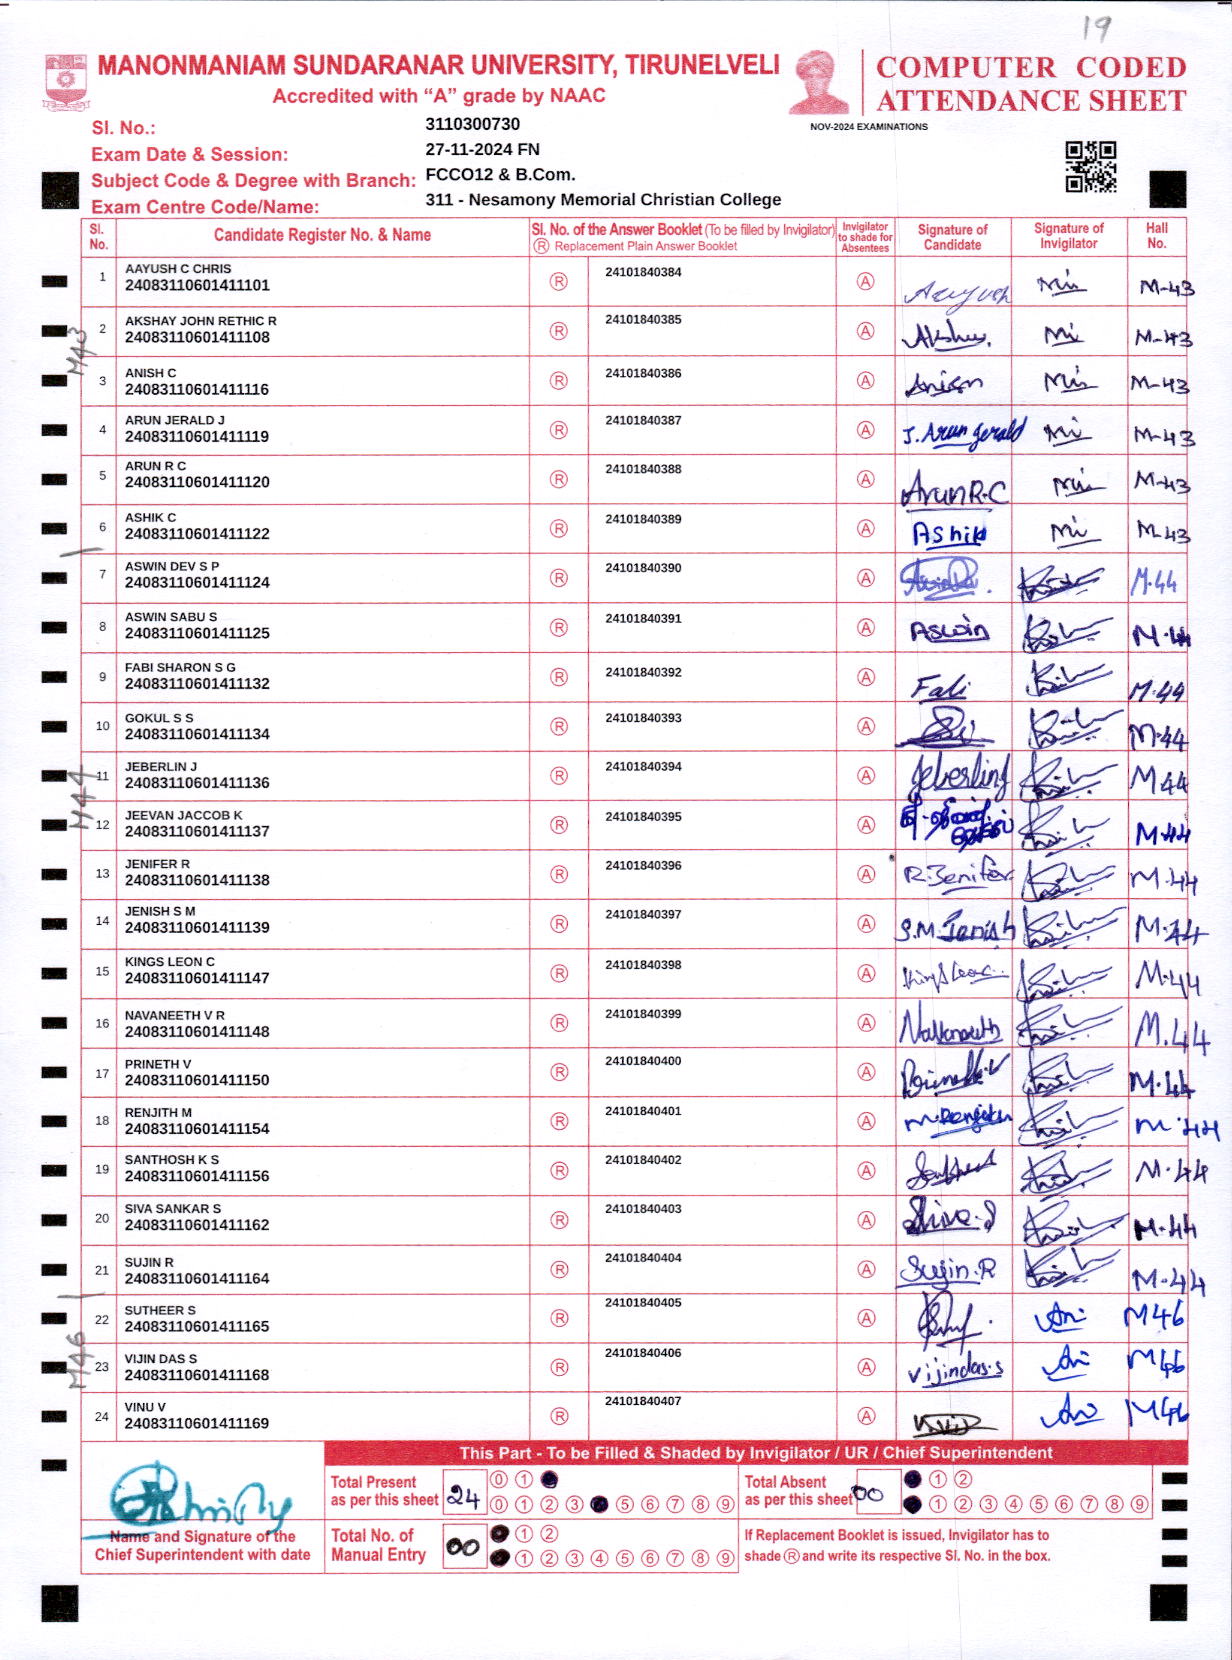 19
MANONMANIAM SUNDARANAR UNIVERSITY, TIRUNELVELI
Accredited with “A” grade by NAAC
COMPUTER CODED
ATTENDANCE SHEET
NOV-2024 EXAMINATIONS
Sl. No.: 3110300730
Exam Date & Session: 27-11-2024 FN
Subject Code & Degree with Branch: FCCO12 & B.Com.
Exam Centre Code/Name: 311 - Nesamony Memorial Christian College
Sl. No. Candidate Register No. & Name Sl. No. of the Answer Booklet (To be filled by Invigilator) Ⓡ Replacement Plain Answer Booklet Invigilator to shade for Absentees Signature of Candidate Signature of Invigilator Hall No.
1 AAYUSH C CHRIS 24101840384
24083110601411101 Ⓡ Ⓐ Aayush M-43
2 AKSHAY JOHN RETHIC R 24101840385
24083110601411108 Ⓡ Ⓐ M-43
M43
3 ANISH C 24101840386
24083110601411116 Ⓡ Ⓐ Anish M-43
4 ARUN JERALD J 24101840387
24083110601411119 Ⓡ Ⓐ J. Arun Jerald M-43
5 ARUN R C 24101840388
24083110601411120 Ⓡ Ⓐ Arun R.C M-43
6 ASHIK C 24101840389
24083110601411122 Ⓡ Ⓐ Ashik M-43
7 ASWIN DEV S P 24101840390
24083110601411124 Ⓡ Ⓐ M.44
8 ASWIN SABU S 24101840391
24083110601411125 Ⓡ Ⓐ Aswin M.44
9 FABI SHARON S G 24101840392
24083110601411132 Ⓡ Ⓐ Fabi M.44
10 GOKUL S S 24101840393
24083110601411134 Ⓡ Ⓐ M.44
11 JEBERLIN J 24101840394
24083110601411136 Ⓡ Ⓐ Jeberlin J M44
M44
12 JEEVAN JACCOB K 24101840395
24083110601411137 Ⓡ Ⓐ M.44
13 JENIFER R 24101840396
24083110601411138 Ⓡ Ⓐ R. Jenifer M.44
14 JENISH S M 24101840397
24083110601411139 Ⓡ Ⓐ S.M. Jenish M.44
15 KINGS LEON C 24101840398
24083110601411147 Ⓡ Ⓐ M.44
16 NAVANEETH V R 24101840399
24083110601411148 Ⓡ Ⓐ Navaneeth M.44
17 PRINETH V 24101840400
24083110601411150 Ⓡ Ⓐ Prineth.V M.44
18 RENJITH M 24101840401
24083110601411154 Ⓡ Ⓐ M. Renjith M.44
19 SANTHOSH K S 24101840402
24083110601411156 Ⓡ Ⓐ M.44
20 SIVA SANKAR S 24101840403
24083110601411162 Ⓡ Ⓐ Shiva.S M.44
21 SUJIN R 24101840404
24083110601411164 Ⓡ Ⓐ Sujin.R M.44
22 SUTHEER S 24101840405
24083110601411165 Ⓡ Ⓐ M46
M46
23 VIJIN DAS S 24101840406
24083110601411168 Ⓡ Ⓐ Vijindas.s M46
24 VINU V 24101840407
24083110601411169 Ⓡ Ⓐ M46
This Part - To be Filled & Shaded by Invigilator / UR / Chief Superintendent
Total Present as per this sheet 24 0 1
0 1 2 3 5 6 7 8 9
Total Absent as per this sheet 00 1 2
1 2 3 4 5 6 7 8 9
Name and Signature of the Chief Superintendent with date
Total No. of Manual Entry 00 1 2
1 2 3 4 5 6 7 8 9
If Replacement Booklet is issued, Invigilator has to
shade Ⓡ and write its respective Sl. No. in the box.